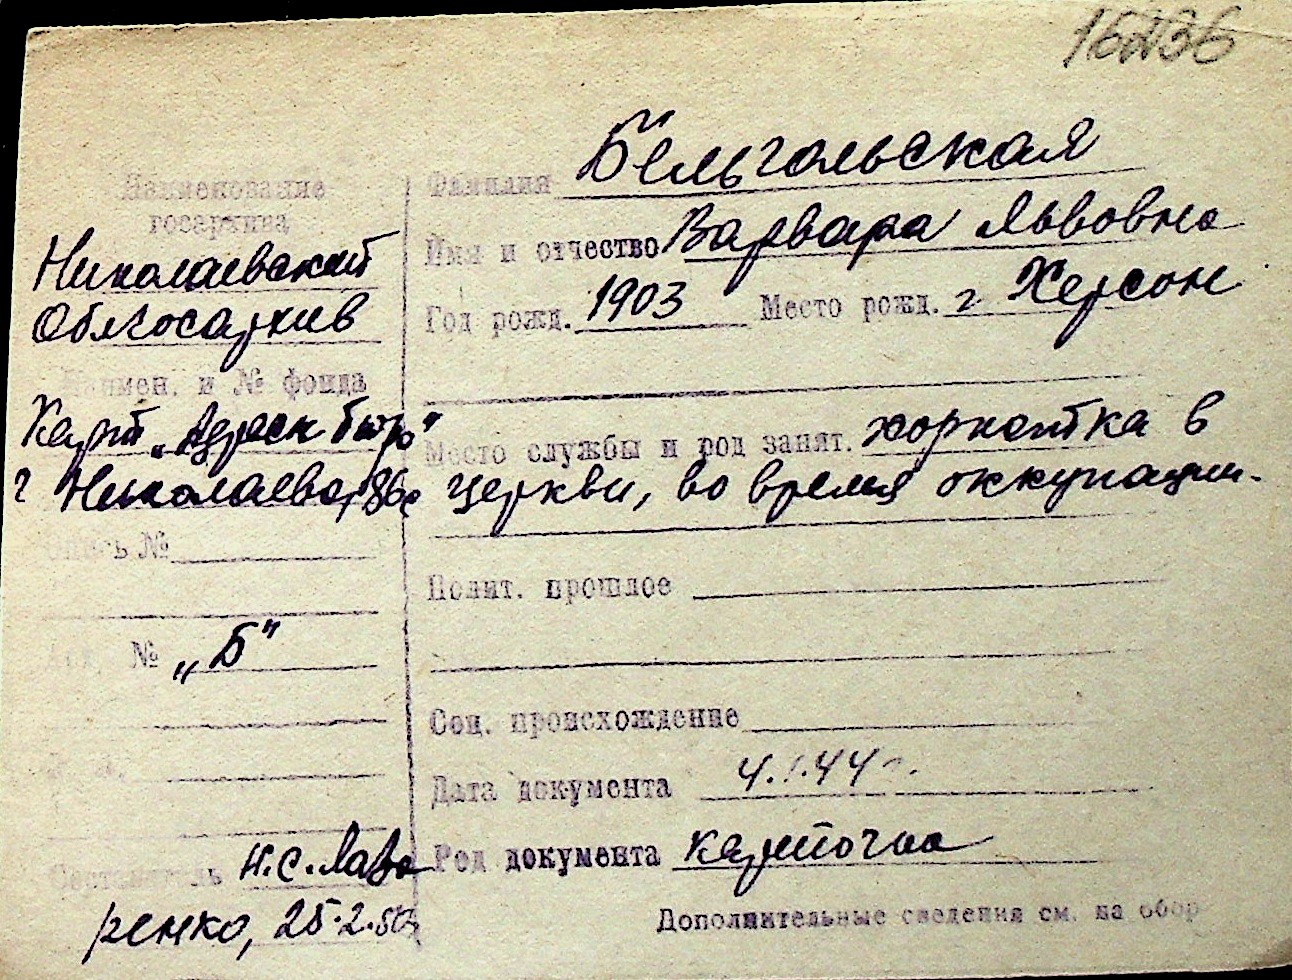 Наименование
госархива
Николаевский
Облгосархив
Наимен. и № фонда
Карт „Адресн бюро"
г Николаева,
Опись №
№ „Б"
Составитель Н.С. Лаво
ренко, 25.2.50
Фамилия Бельгольская
Имя и отчество Варвара Львовна
Год рожд. 1903 Место рожд. г Херсон
Место службы и род занят. хористка в
церкви, во время оккупации.
Полит. прошлое
Соц. происхождение
Дата документа 4.1.44 г.
Род документа карточка
Дополнительные сведения см. на обор